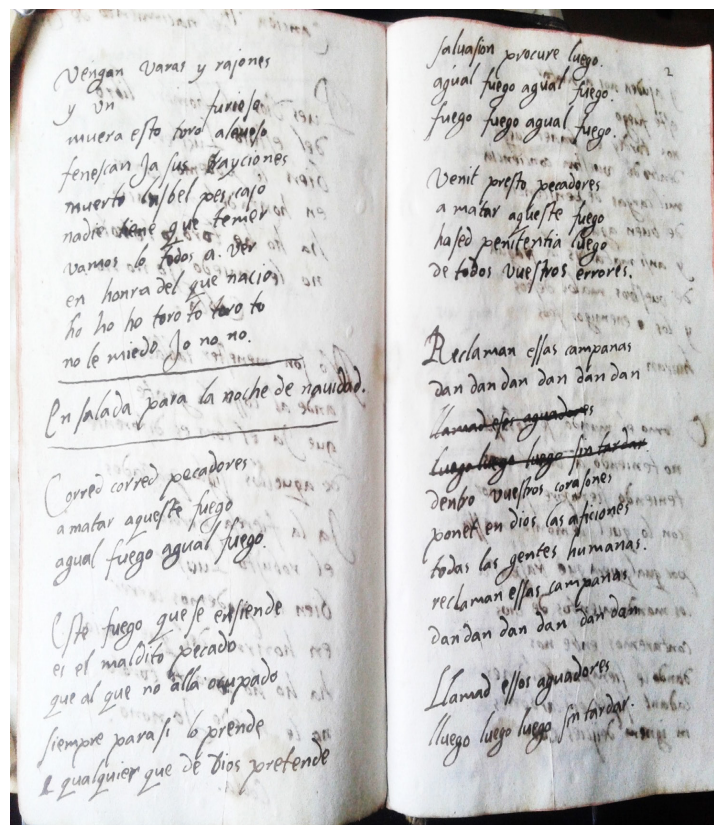 Vengan varas y rajones
y un furioso
muera esto toro aleuoso
fenescan ja sus trayciones
muerto lusbel pescaso
nadie tiene que temer
vamos lo todos a ver
en honra del que nacio
ho ho ho toro to toro to
no le miedo jo no no.
En salada para la noche de nauidad.
Corred corred pecadores
a matar aqueste fuego
agual fuego agual fuego.
Este fuego que se ensiende
es el maldito pecado
que al que no alla ocupado
siempre para si lo prende
qualquier que de Dios pretende
2
saluasion procure luego.
agual fuego agual fuego.
fuego fuego agual fuego.
Venit presto pecadores
a matar aqueste fuego
hased penitentia luego
de todos vuestros errores.
Reclaman essas campanas
dan dan dan dan dan dan
llamad esos aguadores
luego luego luego sin tardar
dentro vuestros corasones
ponet en dios las aficiones
todas las gentes humanas.
reclaman essas campanas
dan dan dan dan dan dan
Llamad essos aguadores
lluego luego luego sin tardar.